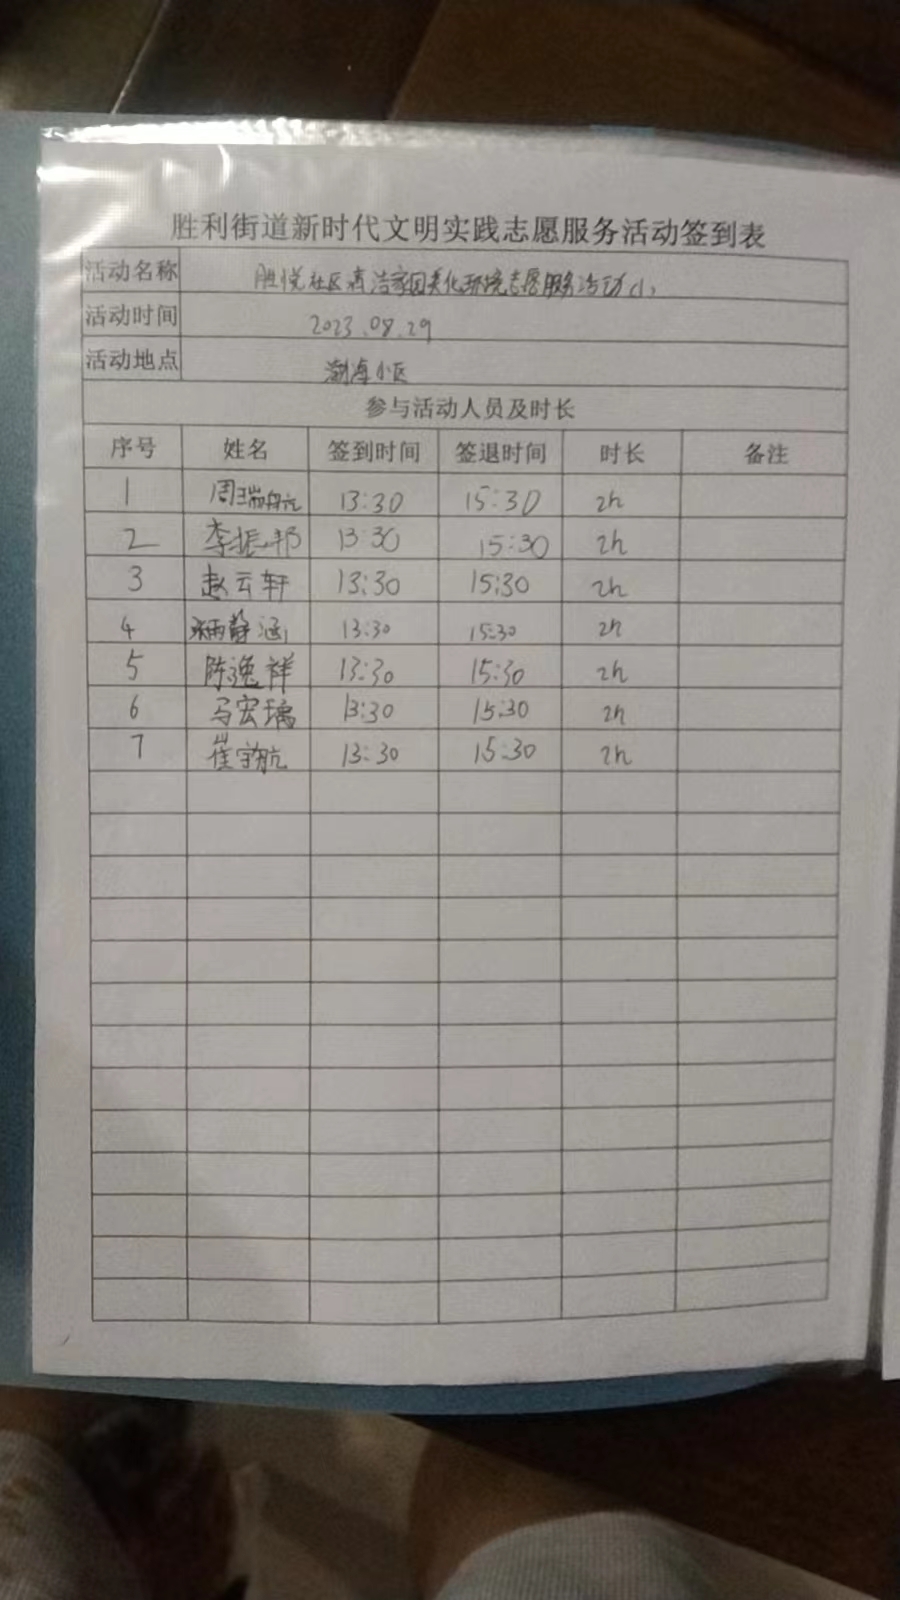 胜利街道新时代文明实践志愿服务活动签到表
活动名称 胜悦社区清洁家园美化环境志愿服务活动(1)
活动时间 2023.08.29
活动地点 渤海小区
参与活动人员及时长
序号 姓名 签到时间 签退时间 时长 备注
1 周瑞航 13:30 15:30 2h
2 李振邦 13:30 15:30 2h
3 赵云轩 13:30 15:30 2h
4 静涵 13:30 15:30 2h
5 陈逸祥 13:30 15:30 2h
6 马宏瑀 13:30 15:30 2h
7 崔宇航 13:30 15:30 2h